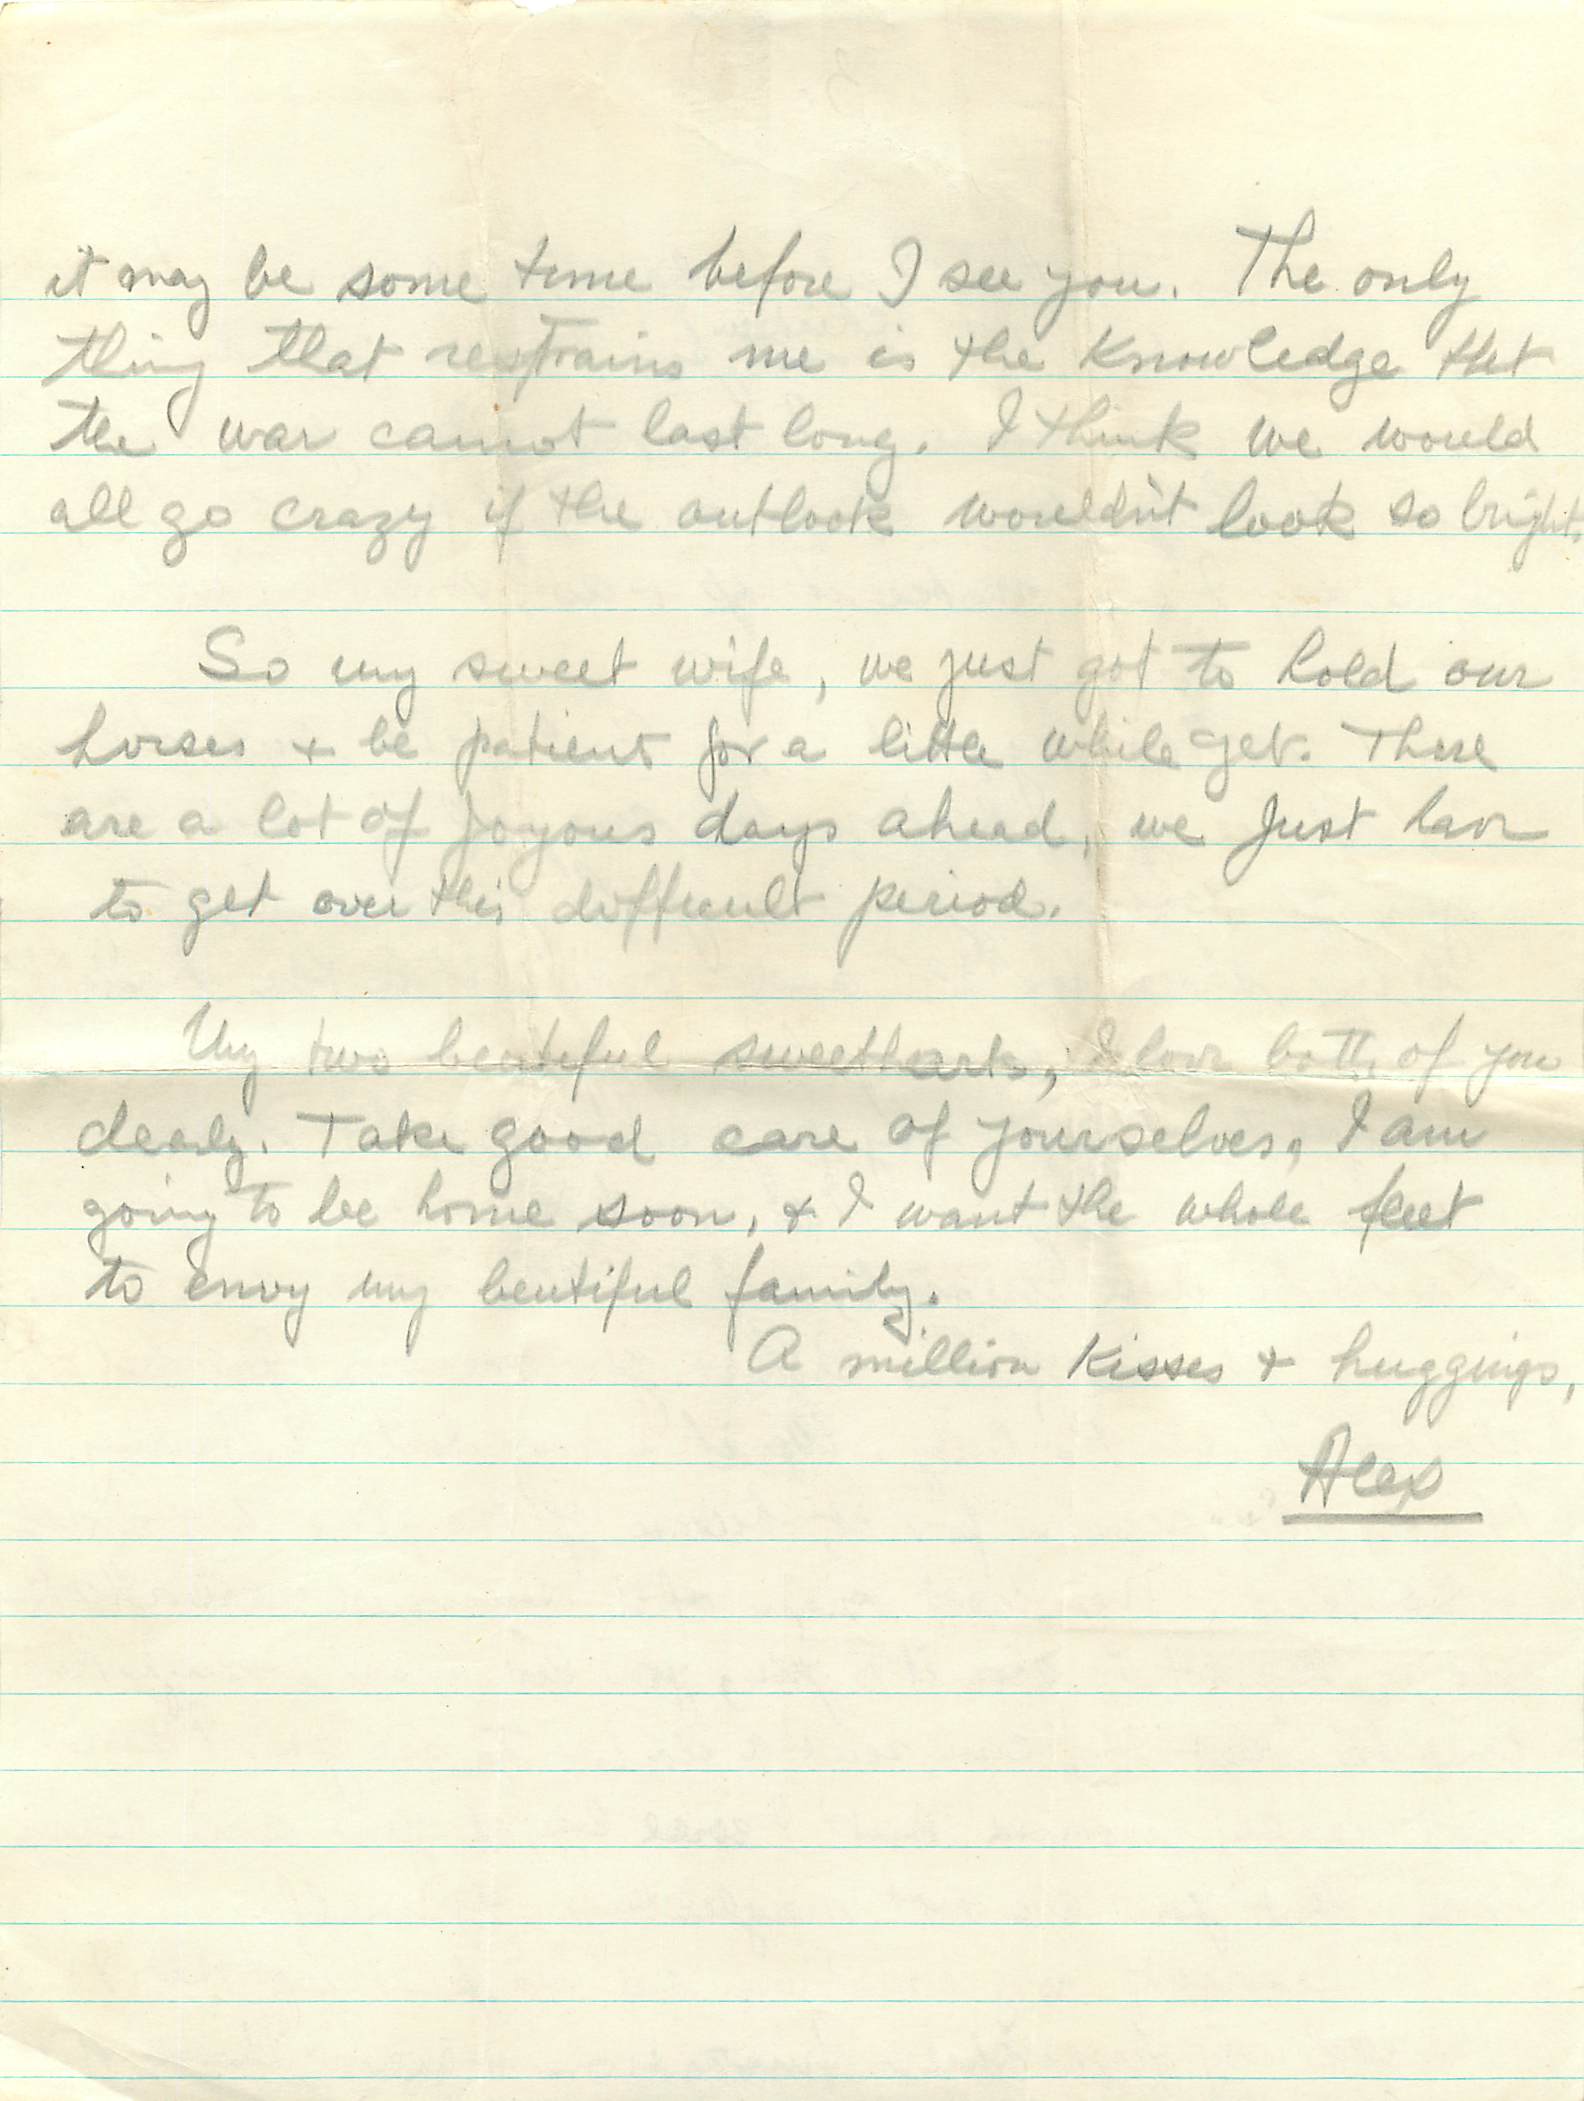 it may be some time before I see you. The only
thing that restrains me is the knowledge that
the war cannot last long. I think we would
all go crazy if the outlook wouldn't look so bright.
So my sweet wife, we just got to hold our
horses + be patient for a little while yet. There
are a lot of joyous days ahead, we just have
to get over this difficult period.
My two beautiful sweethearts, I love both of you
dearly. Take good care of yourselves, I am
going to be home soon, + I want the whole fleet
to envy my beutiful family.
A million kisses + huggings,
Alex